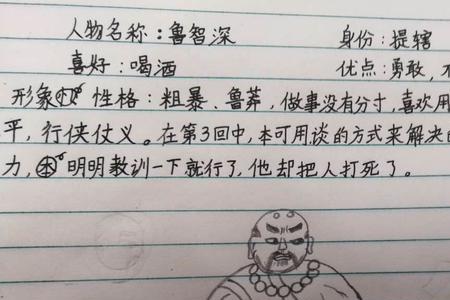 人物名称：鲁智深 身份：提辖
喜好：喝酒 优点：勇敢，
形象 性格：粗暴、鲁莽，做事没有分寸，喜欢用
平，行侠仗义。在第3回中，本可用谈的方式来解决的
力，明明教训一下就行了，他却把人打死了。